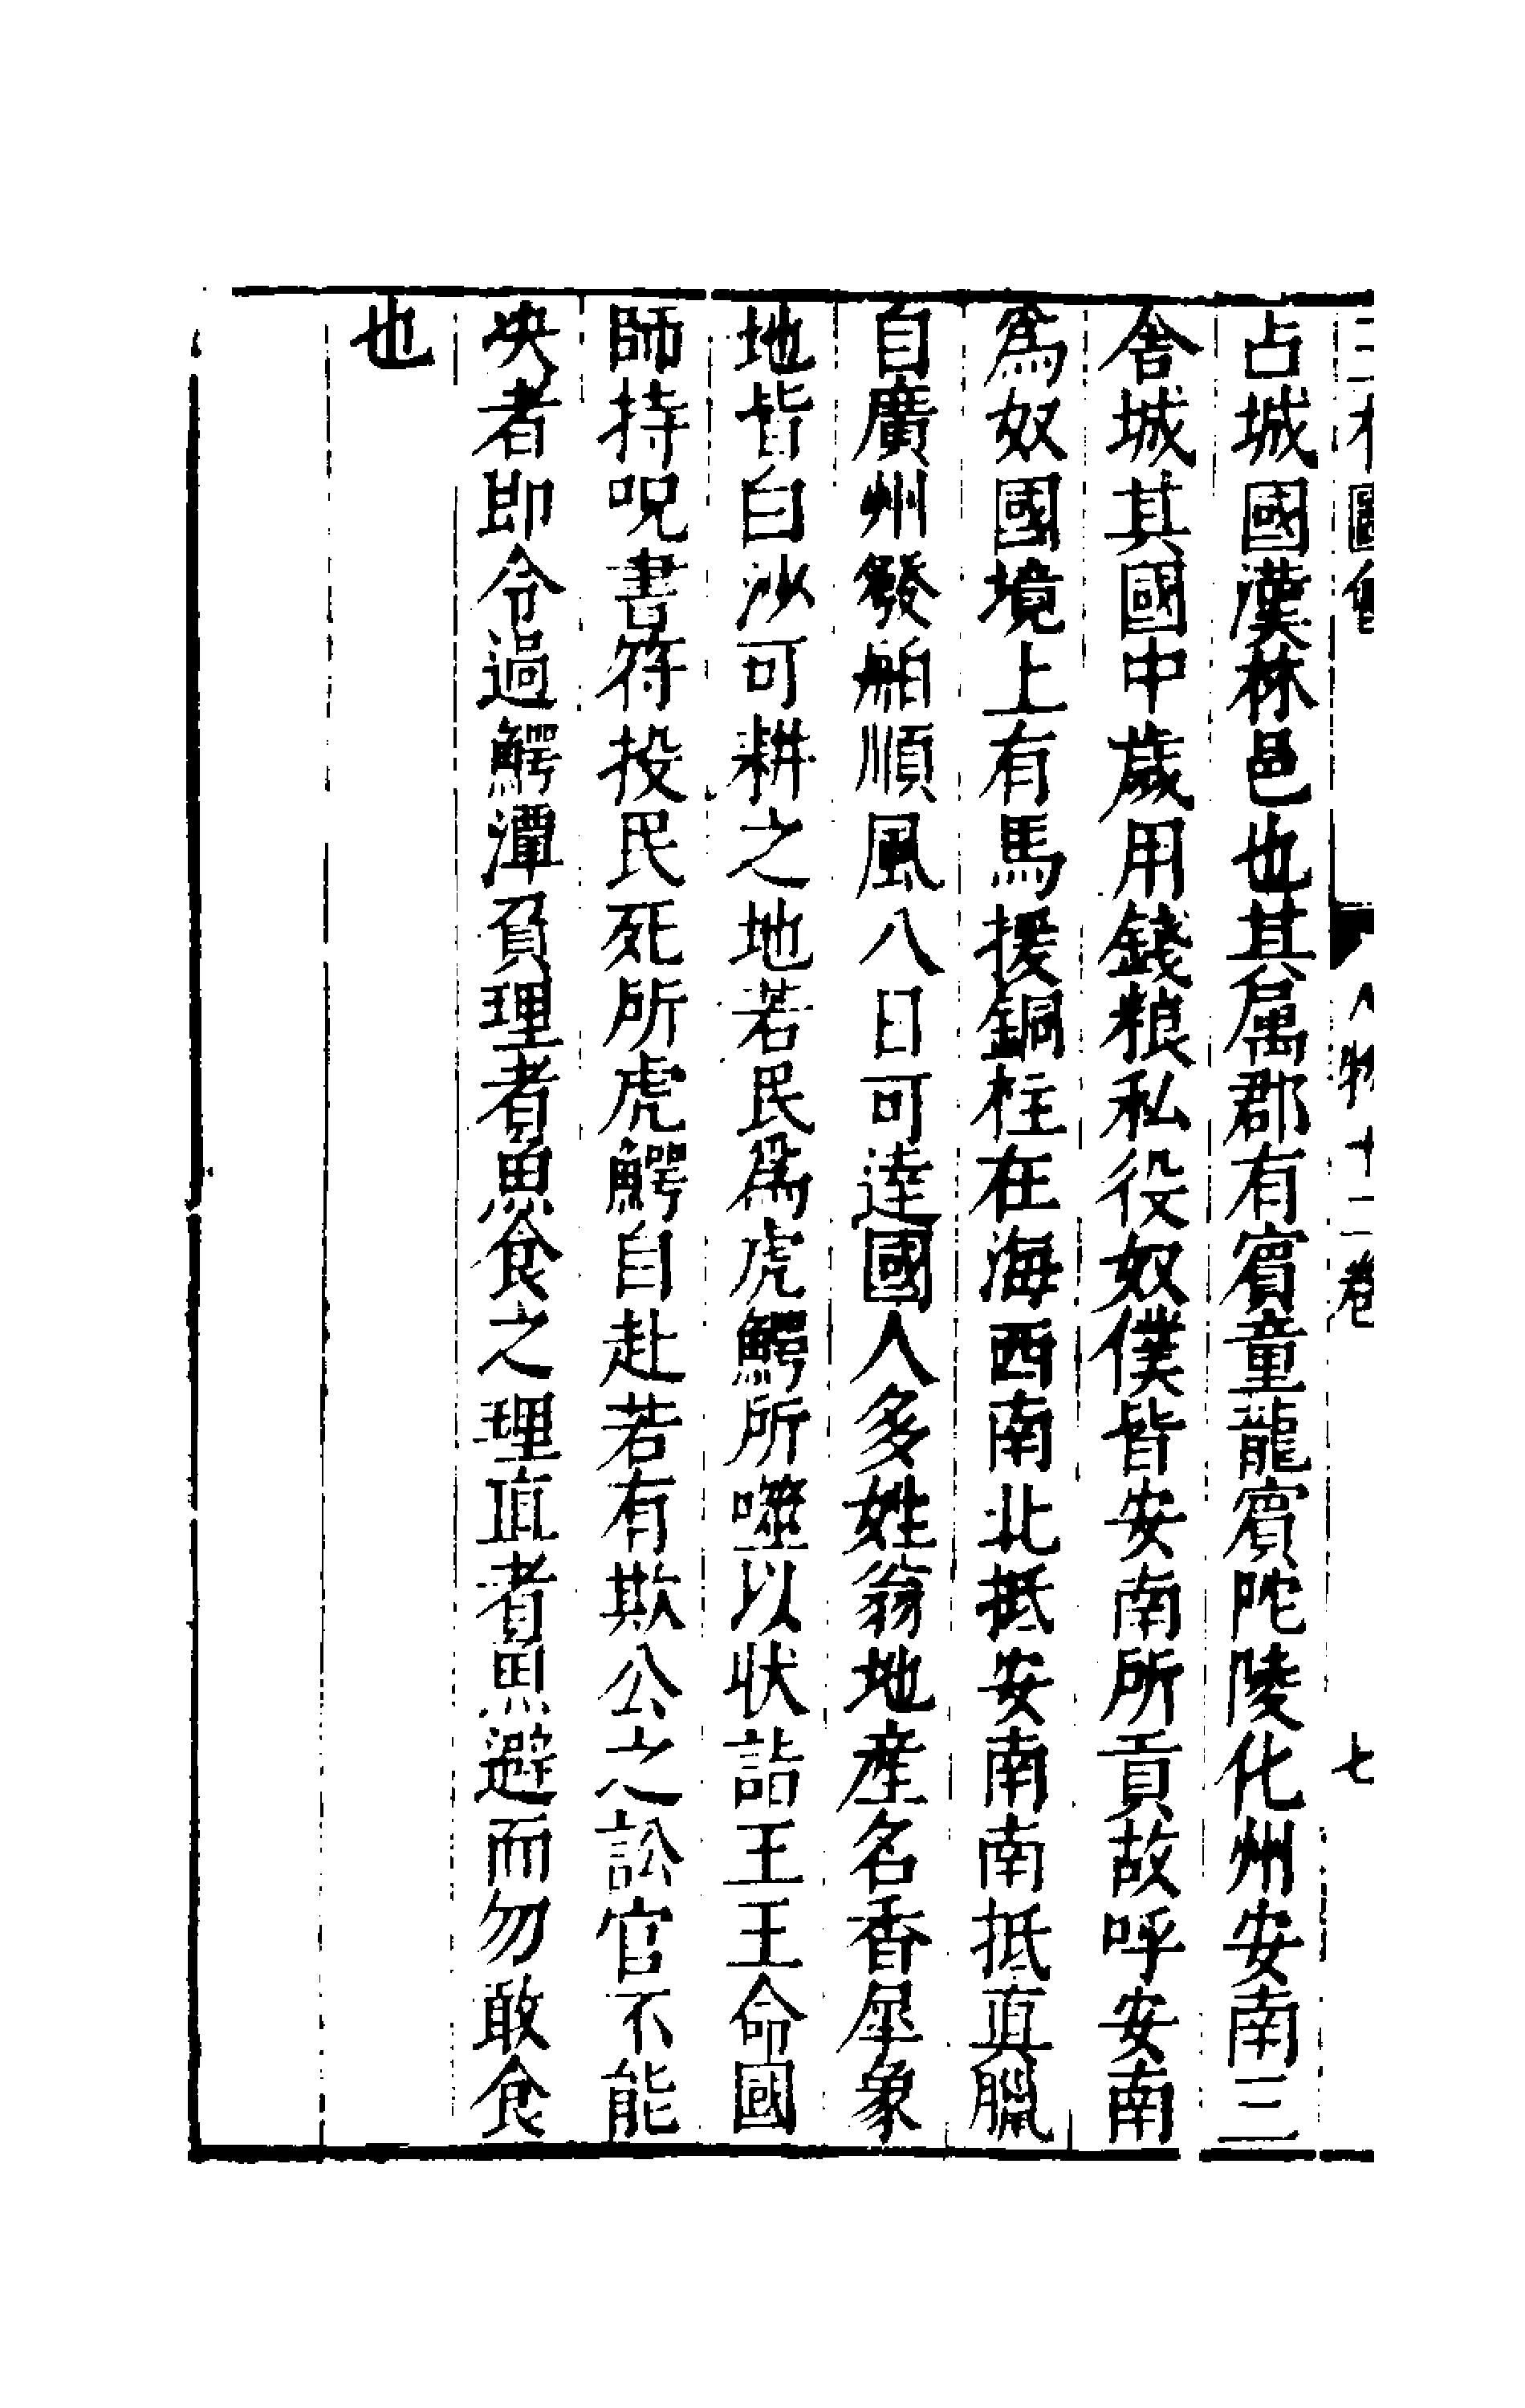 三才圖會 人物十二卷 七
占城國漢林邑也其属郡有賓童龍賓陀陵化州安南三
舍城其國中歲用錢粮私役奴僕皆安南所貢故呼安南
爲奴國境上有馬援銅柱在海西南北抵安南南抵真臘
自廣州發舶順風八日可達國人多姓翁地產名香犀象
地皆白沙可耕之地若民爲虎鰐所噬以状詣王王命國
師持呪書符投民死所虎鰐自赴若有欺公之訟官不能
决者即令過鰐潭負理者魚食之理直者魚避而勿敢食
也